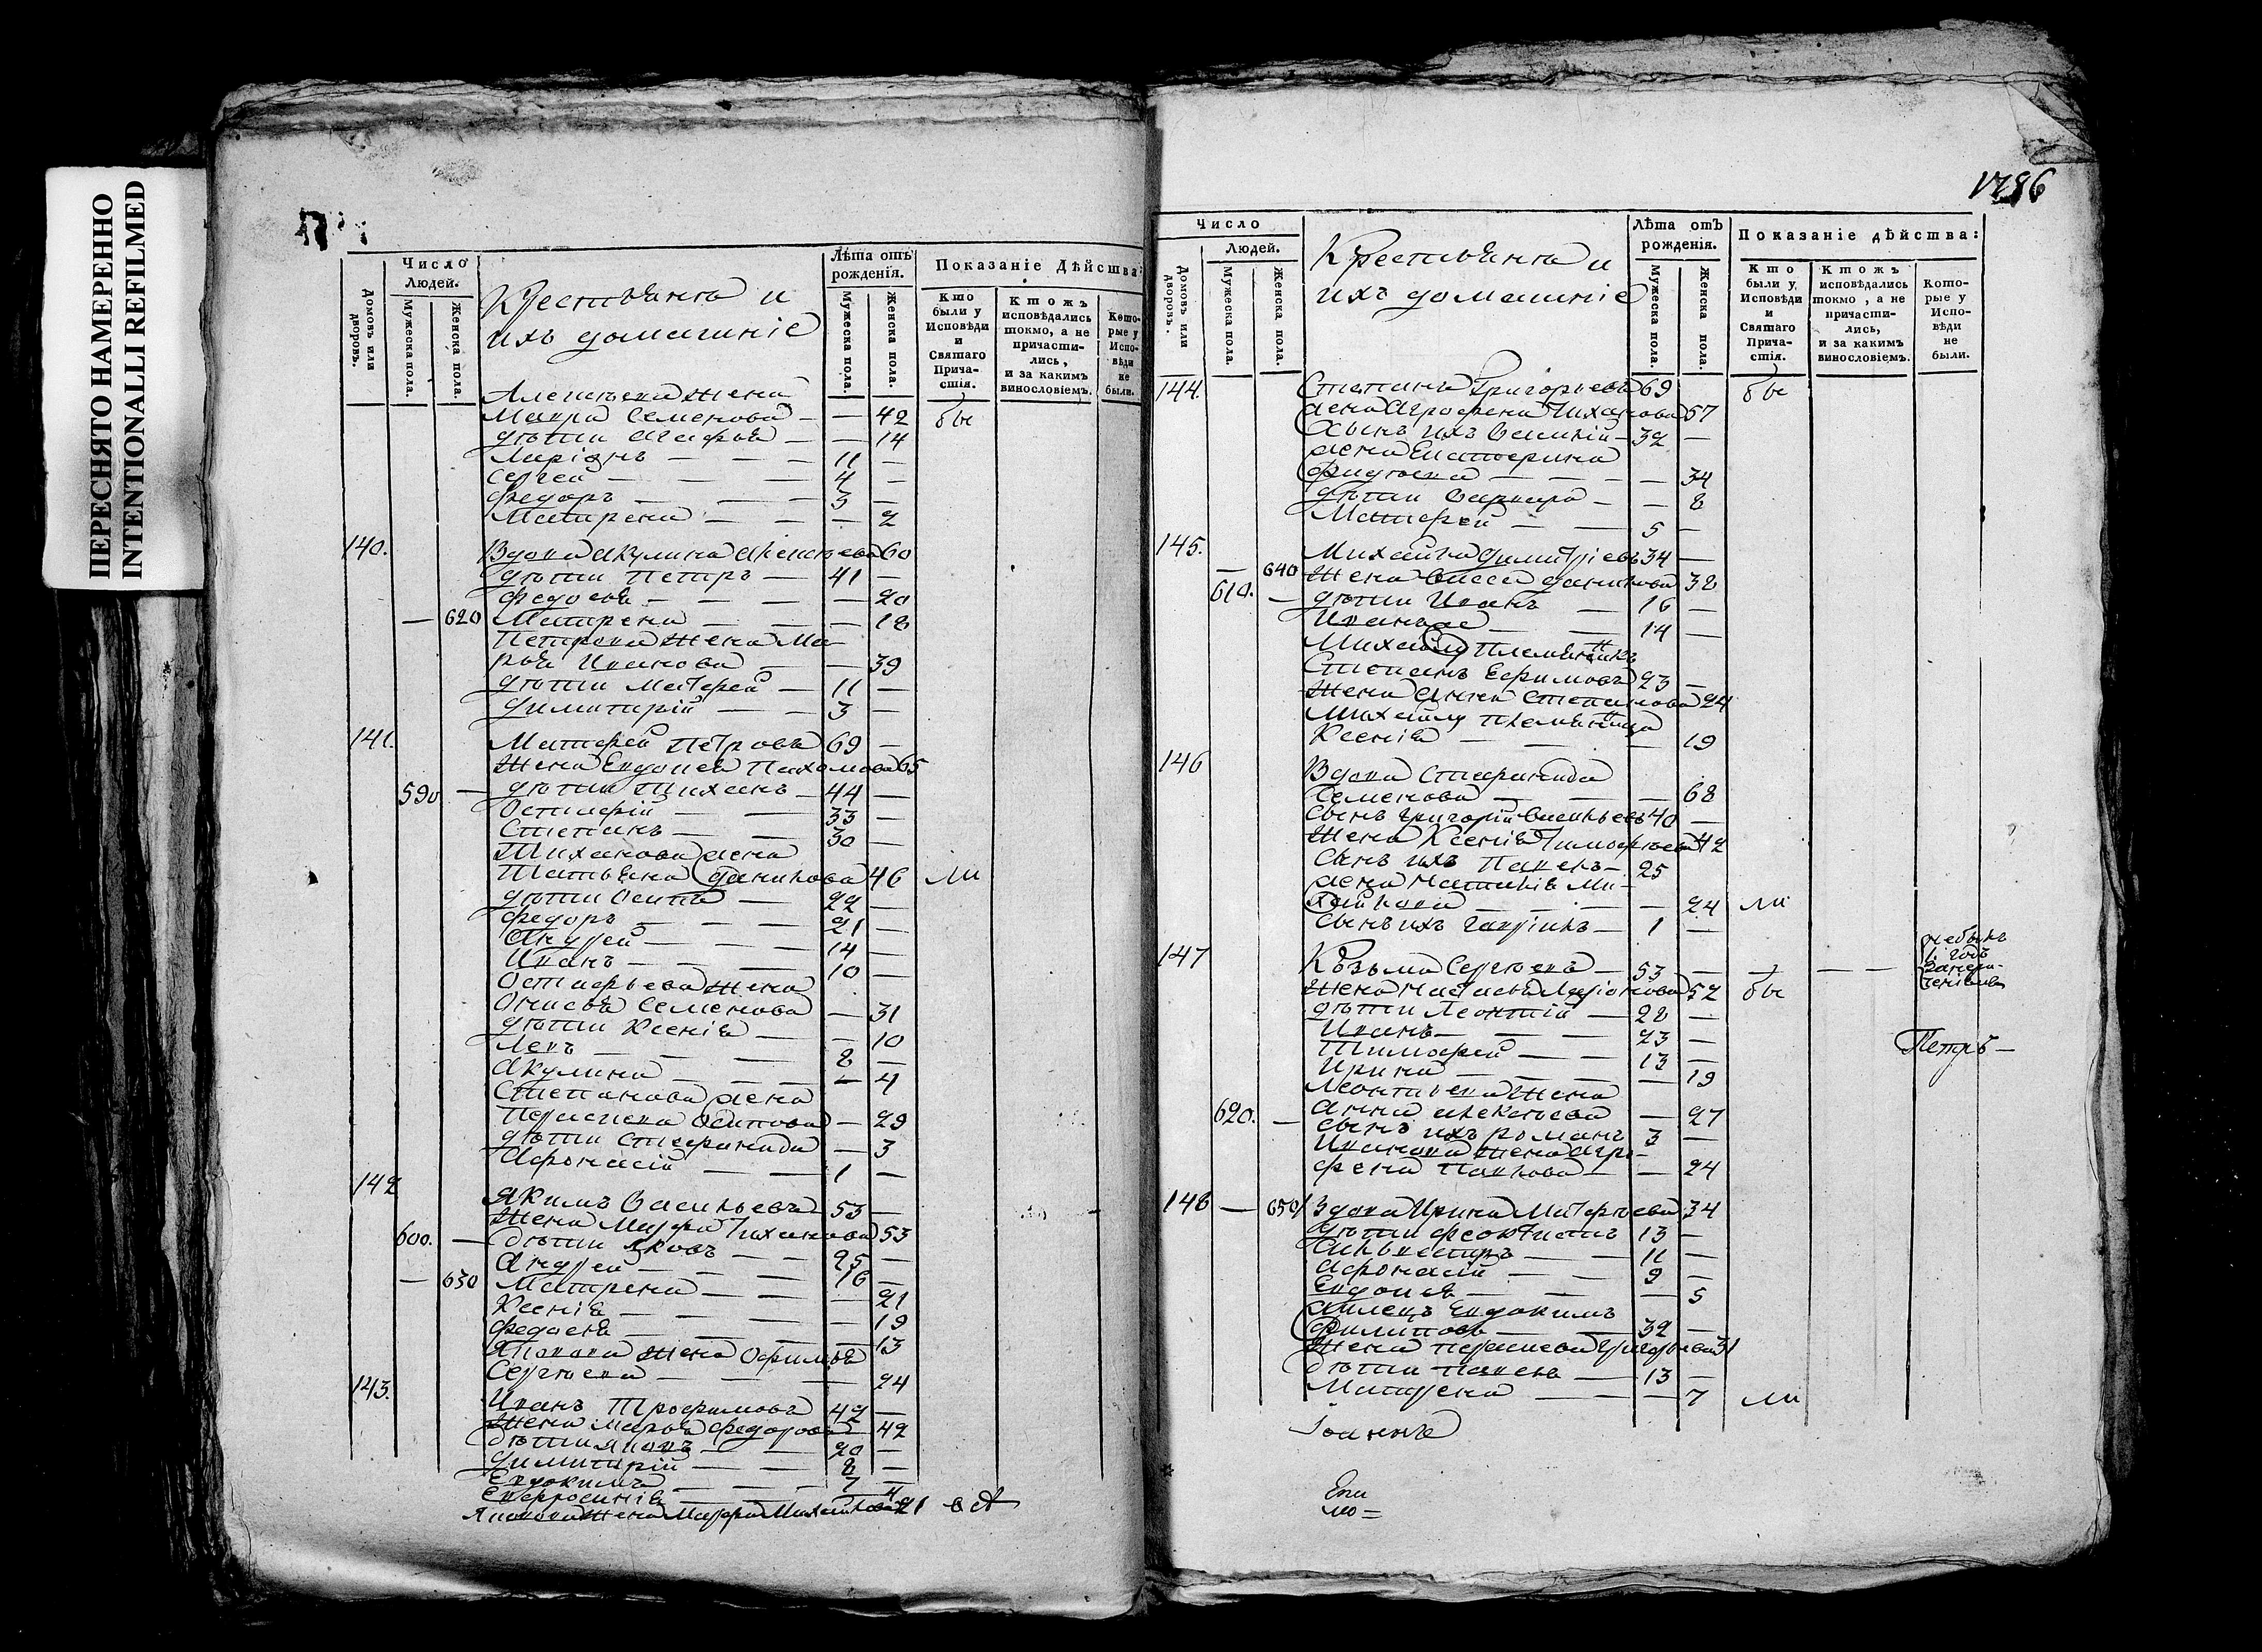 ПЕРЕСНЯТО НАМЕРЕННО
INTENTIONALLI REFILMED
Число
Людей.
Домовъ или дворовъ.
Мужеска пола.
Женска пола.
Крестьяна и
ихъ домашніе
Лѣта отъ рожденія.
Мужеска пола.
Женска пола.
Показаніе Дѣйства:
Кто были у Исповѣди и Святаго Прича-стія.
Ктожъ исповѣдались токмо, а не причасти-лись, и за какимъ винословіемъ.
Кото-рые у Испо-вѣди не были.
Алексѣева жена
Мавра Семенова — — 42 бы
дѣти Агафья — — 14
Ларіонъ — — — 11 —
Сергей — — — 4 —
Федоръ — — — 3 —
Матрена — — — 2
140. Вдова Акулина Алексѣева 60
дѣти Петръ — 41 —
Федосья — — — 20
— 620 Матрена — — — 18
Петрова жена Ма-
рья Иванова — — 39
дѣти Матфей — 11 —
Димитрій — — 3 —
141. Матфей Петровъ 69 —
Жена Евдокія Пахомова 65
590 — дѣти Тиханъ — 44 —
Остафій — — 33 —
Степанъ — — 30 —
Тиханова жена
Татьяна Данилова 46 ли
дѣти Осипъ — 22 —
Федоръ — — 21 —
Андрей — — 14 —
Иванъ — — — 10 —
Остафьева жена
Анисья Семенова — 31
дѣти Ксенія — — 10
Левъ — — — 8 —
Акулина — — — 4
Степанова жена
Парасцева Осипова — 29
дѣти Стефанида — 3
Афонасій — — 1 —
142 Якимъ Васильевъ 53 —
Жена Марфа Тиханова 53
600. — дѣти Яковъ — — 25 —
Андрей — — — 16 —
— 630 Матрена — — — 21
Ксенія — — — 19
Федосья — — — 13
Яковова жена Офимья
Сергѣева — — — 24
143. Иванъ Трофимовъ 42 —
Жена Марья Федорова 42
дѣти Яковъ — — 20 —
Димитрій — — 8 —
Евдокимъ — — 7 —
Евфросинія — — 4
Яковова жена Марфа Михайлова 21
1786
Число
Людей.
Домовъ или дворовъ.
Мужеска пола.
Женска пола.
Крестьяна и
ихъ домашніе
Лѣта отъ рожденія.
Мужеска пола.
Женска пола.
Показаніе дѣйства:
Кто были у Исповѣди и Святаго Прича-стія.
Ктожъ исповѣдались токмо, а не причасти-лись, и за какимъ винословіемъ.
Кото-рые у Испо-вѣди не были.
144. Степанъ Григорьевъ 69 бы
жена Агрофена Тиханова 57
Сынъ ихъ Василій — 32 —
жена Екатерина
Фадѣева — — — 34
дѣти Варвара — — 8
Матфей — — 5 —
145. Михайла Димитріевъ 34 —
— 640 Жена Васса Данилова 38
610. — дѣти Иванъ — 16 —
Иванъ же — — 14 —
Михайлу племянникъ
Степанъ Ефимовъ 23 —
Жена Анна Степанова 24
Михайлу племянница
Ксенія — — — 19
146 Вдова Стефанида
Семенова — — — 68
Сынъ Григорій Васильевъ 40 —
Жена Ксенія Тимофѣева 42
Сынъ ихъ Павелъ — 25
жена Наталія Ми-
хайлова — — — 24 ли
Сынъ ихъ Гавріилъ — 1 —
147 Козьма Сергѣевъ — 53 — — — — не былъ
1. годъ
Жена Настасья Ларіонова 52 бы
дѣти Леонтій — 28 —
Иванъ — — 23 — Петръ —
Тимофей — — 13 —
Ирина — — — 19
Леонтьева жена
Анна Алексѣева — 27
620. — сынъ ихъ Романъ 3 —
Иванова жена Агро-
фена Павлова — — 24
148 — 650 Вдова Ирина Матфѣева 34
дѣти Феоктистъ 13 —
Сильвестръ — — 11 —
Афонасій — — 9 —
Евдокія — — — 5
Жилецъ Евдокимъ
Филиповъ — — 32 —
Жена Парасцева Григорьева 31
дѣти Павелъ — 13 —
Матрена — — — 7 ли
Іоаннъ